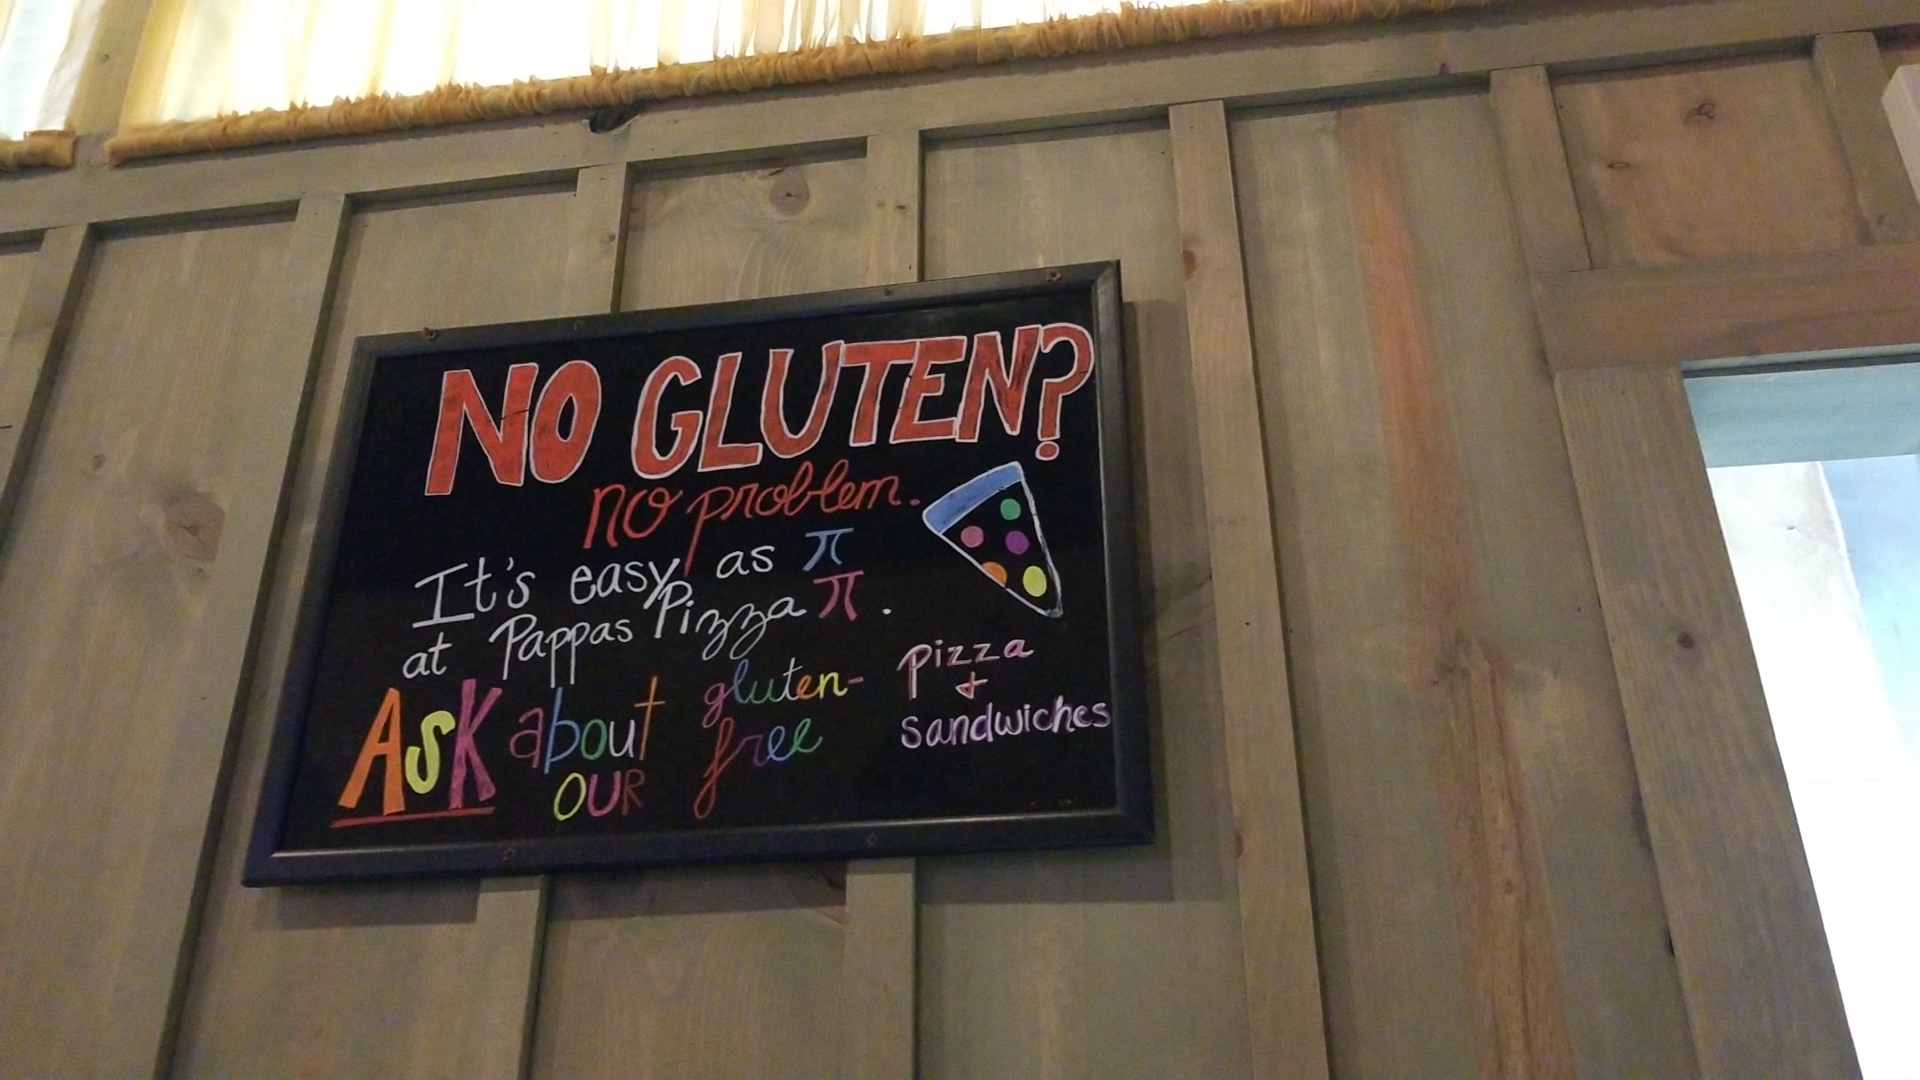 NO GLUTEN?
no problem.
It's easy as π
at Pappas Pizza π.
ASK about
OUR
gluten-
free
pizza
+
sandwiches